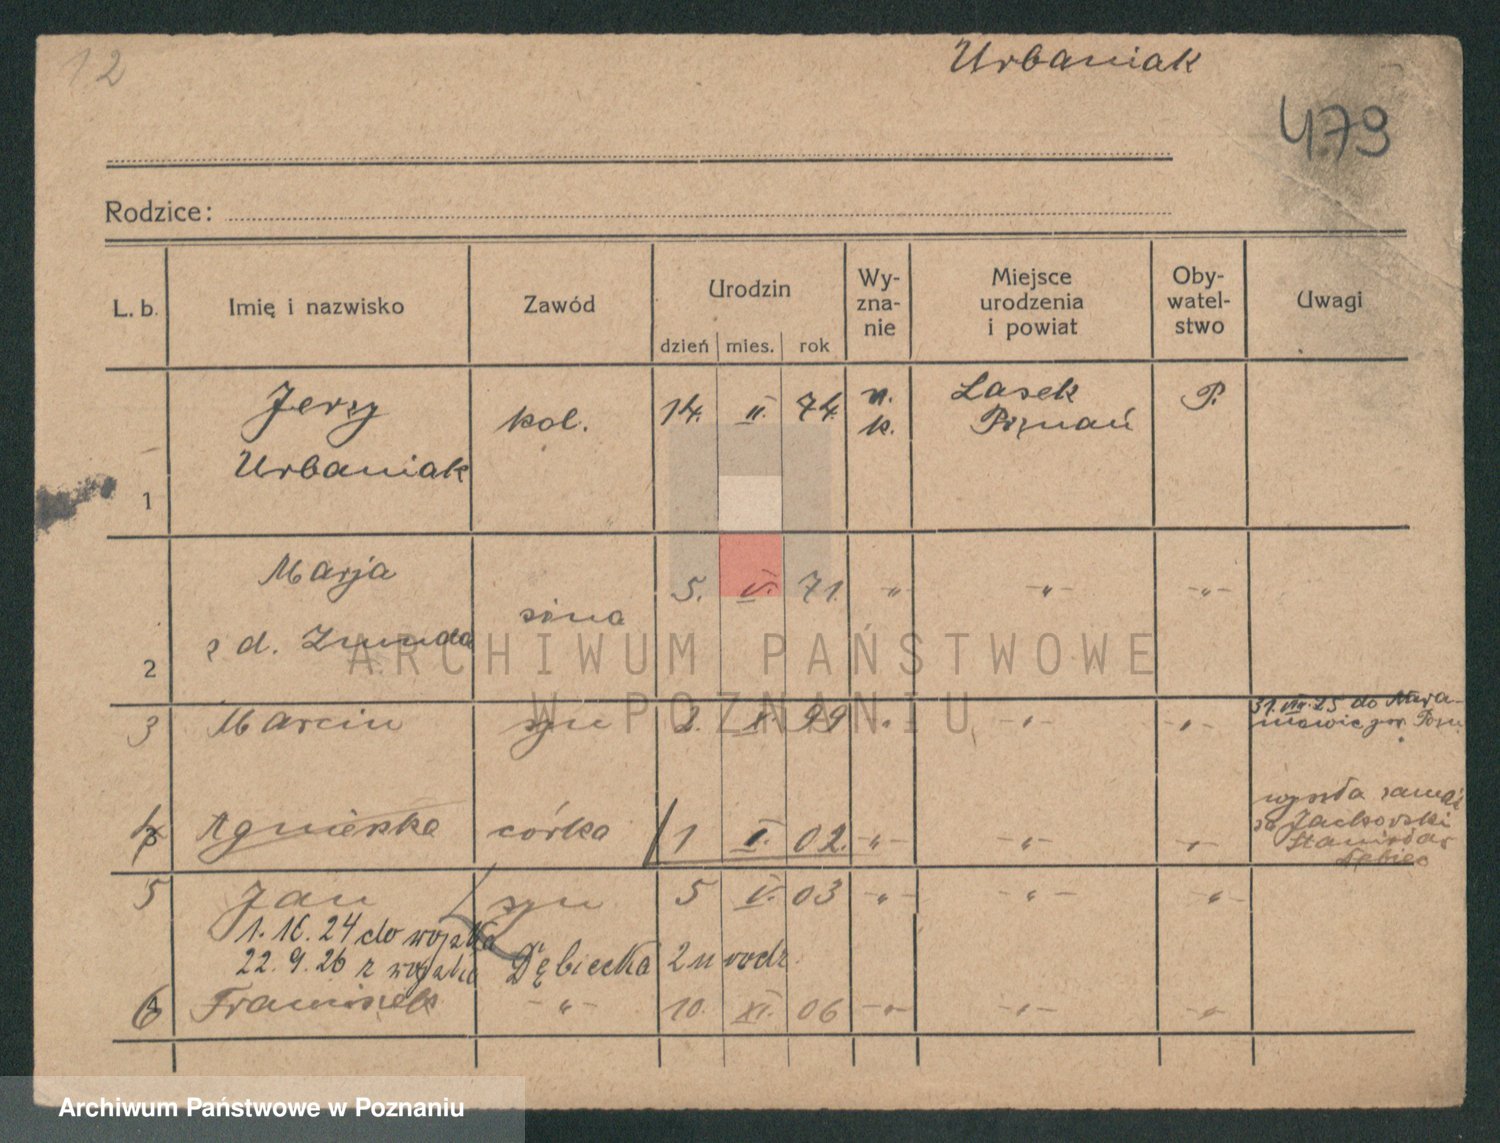 12
Urbaniak
479
Rodzice:
L. b. Imię i nazwisko Zawód Urodzin dzień mies. rok Wy-zna-nie Miejsce urodzenia i powiat Oby-watel-stwo Uwagi
Jerzy kol. 14. II. 74. k. Lasek P.
Urbaniak Poznań
1
Marja 5. 71. -"- -"- -"-
z d. Żmuda żona
2
3 Marcin syn 2. X. 99 -"- -"- -"- 31. VIII. 25 do
4 Agnieszka córka 1 I. 02. -"- -"- -"- wyszła zamąż
za Jackowski
Stanisław
Dębiec
5 Jan syn 5 V. 03 -"- -"- -"-
1. 10. 24 do wojska
22. 9. 26 z wojska Dębiecka 2 u rodz.
6 Franciszek -"- 10. XI. 06 -"- -"- -"-
ARCHIWUM PAŃSTWOWE
W POZNANIU
Archiwum Państwowe w Poznaniu